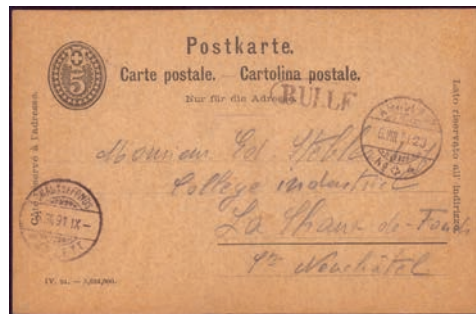 Postkarte.
Carte postale. — Cartolina postale.
Nur für die Adresse.
BULLE
5
Côté réservé à l'adresse.
Lato riservato all' indirizzo.
Monsieur Ed
Collège industriel
La Chaux-de-Fonds
Neuchâtel